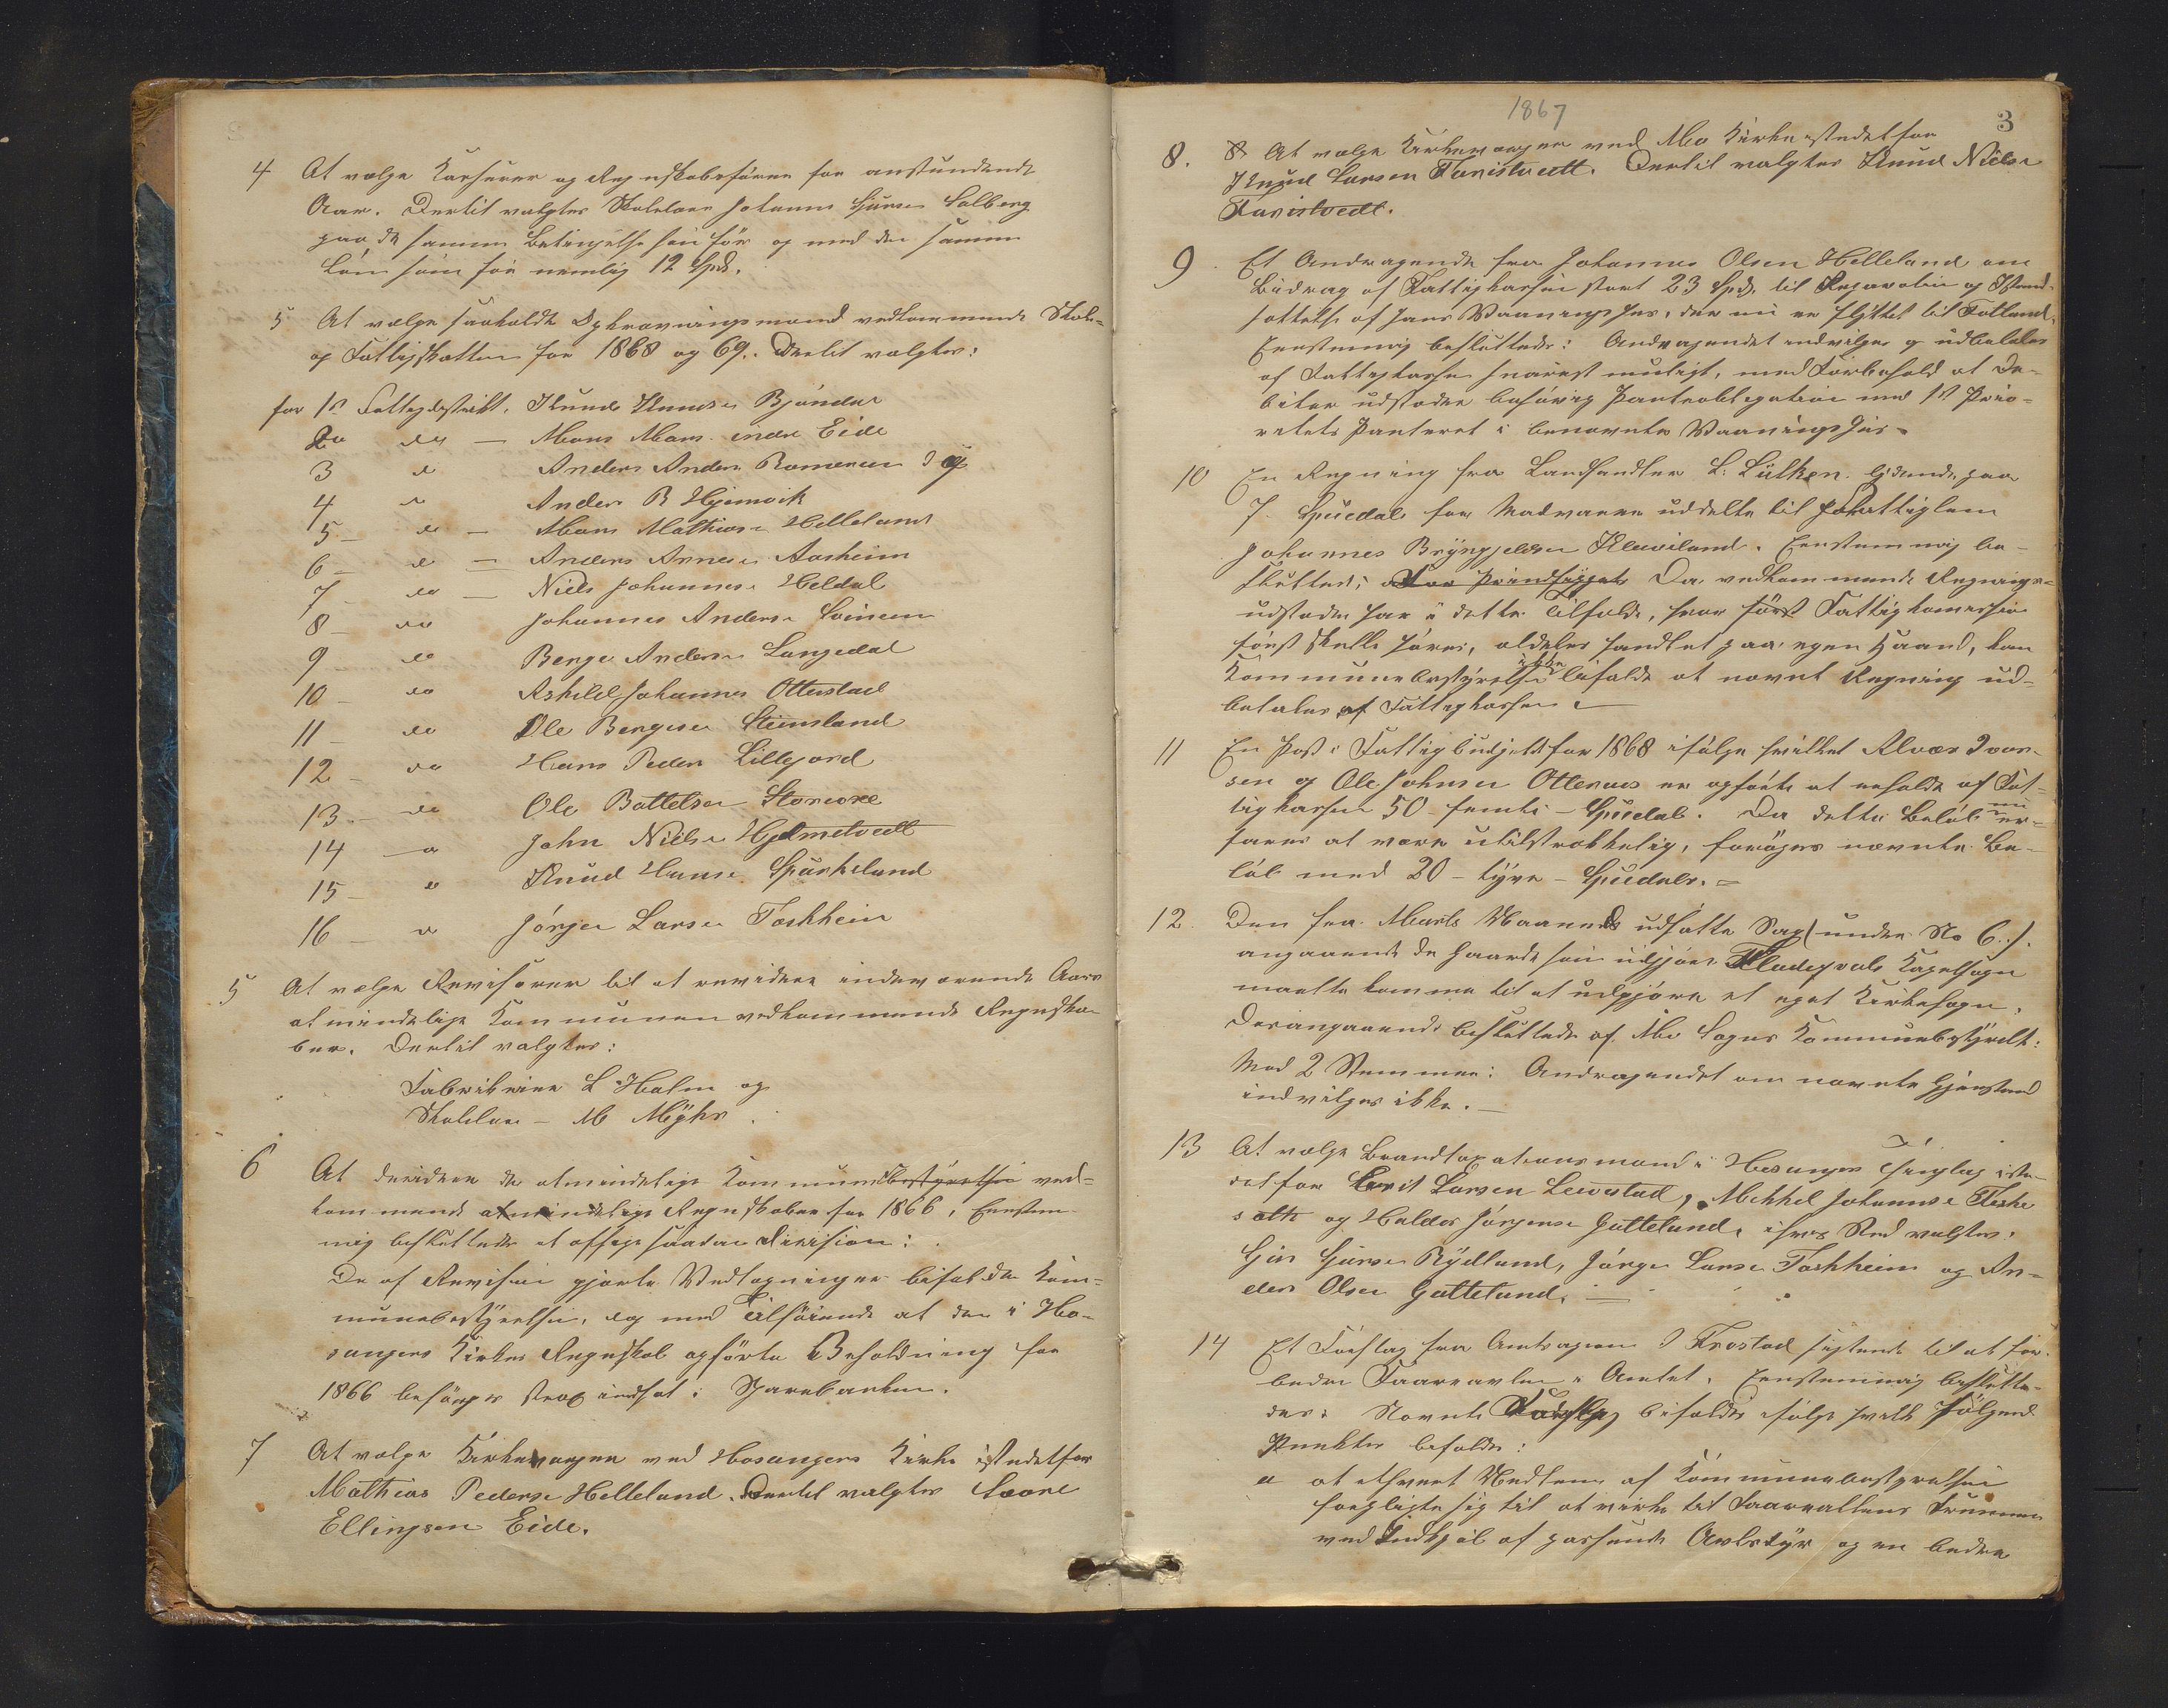 4 At vælge Kasserer og Regnskabsfører for anstundende
Aar. Dertil valgtes Skolelærer Johannes Gjursen Solberg
paa de samme Betingelser som før og med den samme
Løn som før nemlig 12 Spd.
5 At vælge saakaldte Opkrævningsmænd vedkommende Skole-
og Fattigskatten for 1868 og 69. Dertil valgtes:
for 1ste Fattigdistrikt, Knud Knudsen Bjøndal
2 do — Mons Mons. indre Eide
3 d Anders Anders Romereim
4 d Anders R Hjemvik
5 — d — Mons Mathias Helleland
6 — d — Anders Annes Aasheim
7 — do — Niels Johannes Heldal
8 — do Johannes Anders
9 — do Berge Anders Langedal
10 — do Askild Johannes Otterstad
11 — do Ole Bergesen Steinsland
12 — do Hans Peders Lillejord
13 — do Ole Bottelsen Storeore
14 — d John Niels Hjelmtvedt
15 — d Knud Hanse Spurkeland
16 — d Jørgen Larsen Toskheim
5 At vælge Revisorer til at revidere indeværende Aars
almindelige Kommunen vedkommende Regnska-
ber. Dertil valgtes:
Fabrikeier L Holm og
Skolelær — M Myhr
6 At decidere de almindelige Kommunebestyrelsen ved-
kommende almindelige Regnskaber for 1866, Eenstem-
mig besluttedes at afsige saadan Decision:
De af Revisor gjorte Vedtegninger bifaldes Kom-
munebestyrelsen, dog med Tilføiende at den i Ho-
sangers Kirkes Regnskab opførte Beholdning for
1866 besørges strax indsat i Sparebanken.
7 At vælge Kirkeværger ved Hosangers Kirke istedetfor
Mathias Pedersen Helleland. Dertil valgtes
Ellingsen Eide.
1867
3
8. At vælge Kirkeværger ved Mo Kirke istedetfor
Knud Larsen Faristvedt. Dertil valgtes Knud Nielse
Faristvedt.
9 Et Andragende fra Johannes Olsen Helleland om
Bidrag af Fattigkassen stort 23 Spd. til Reparation og Istand-
sættelse af hans Vaaningshus, der nu er flyttet til Fotland.
Eenstemmig besluttedes: Andragendet indvilges og udbetales
af Fattigkassen snarest muligt, med Forbehold at De-
bitor udsteder behørig Panteobligation med 1st Prio-
ritets Panteret i benævnte Vaaningshus.
10 En Regning fra Landhandler L. Lütken lydende paa
7 Speciedaler for Madvarer uddelte til Fattiglem
Johannes Bryngjelsen Kleiviland. Eenstemmig be-
sluttedes: For Principets Da vedkommende Regnings-
udsteder har i dette Tilfælde, hvor først Fattigkommission
først skulle høres, aldeles handlet paa egen Haand, kan
Kommunebestyrelsen ikke bifalde at nævnt Regning ud-
betales af Fattigkassen —
11 En Post i Fattigbudgettet for 1868 ifølge hvilket Alvær Ivar-
sen og Ole Johnsen Otternes er opførte at erholde af Fat-
tigkassen 50 — femti — Speciedal. Da dette Beløb nu er-
fares at være utilstrækkelig, forøges nævnte Be-
løb med 20 — tyve — Speciedaler. —
12. Den fra Marts Maaned udsatte Sag (under No 6.).
angaaende de Gaarde som udgjør Fladegvals Kapelsogn
maatte komme til at udgjøre et eget Kirkesogn.
Desangaaende besluttedes af Mo Sogns Kommunebestyrelse:
Med 2 Stemmer: Andragendet om nævnte Gjenstand
indvilges ikke. —
13 At vælge Brandtaxationsmænd i Hosanger Thinglag iste-
detfor Larsen Leivestad, Mikkel Johannesen Fiske-
sæth og Haldor Jørgensen Gottelund, i hvis Sted valgtes:
Gjursen Rydland, Jørgen Larsen Toskheim og An-
ders Olsen Gottelund. —
14 Et Forslag fra Amtsagronom J Frostad sigtende til at for-
bedre Faareavlen i Amtet. Eenstemmig beslutte-
des: Nævnte Forslag bifaldes ifølge hvilke følgende
Punkter bifaldes:
a at ethvert Medlem af Kommunebestyrelsen
forpligte sig til at virke til Faareavlens Fremme
ved Indkjøb af passende Avlsdyr og en bedre